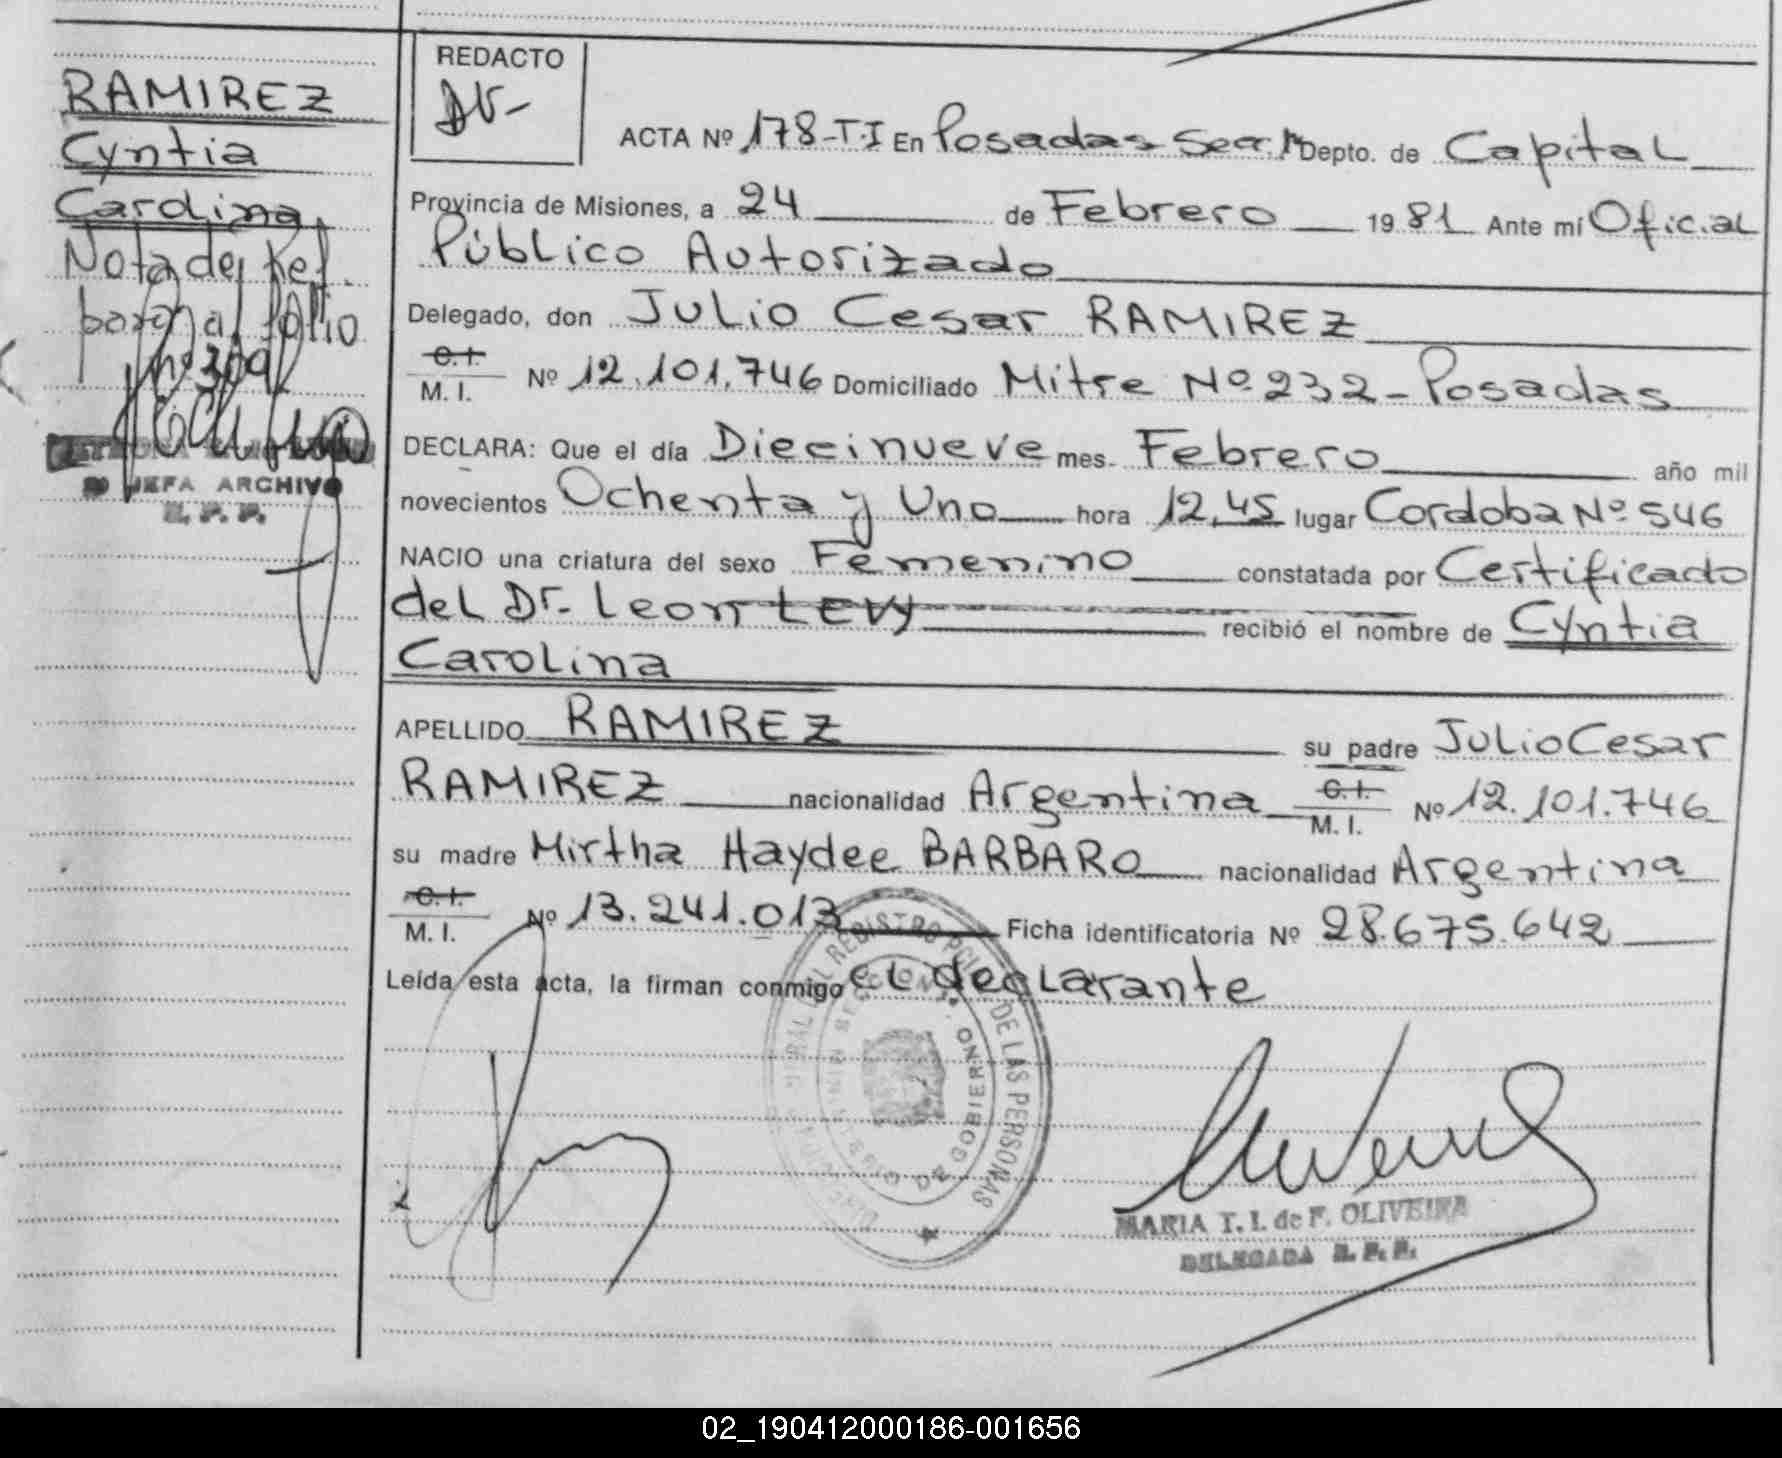 RAMIREZ
Cyntia
Carolina
Nota de Ref.
para al folio
nº 309
JEFA ARCHIVO
R. P. P.
REDACTO
ACTA Nº 178-T·I En Posadas Secc. 1ª Depto. de Capital
Provincia de Misiones, a 24 de Febrero 1981 Ante mí Oficial
Público Autorizado
Delegado, don Julio Cesar RAMIREZ
C. I.
M. I. Nº 12.101.746 Domiciliado Mitre Nº 232 - Posadas
DECLARA: Que el día Diecinueve mes Febrero año mil
novecientos Ochenta y Uno hora 12,45 lugar Cordoba Nº 546
NACIO una criatura del sexo Femenino constatada por Certificado
del Dr. Leon LEVY recibió el nombre de Cyntia
Carolina
APELLIDO RAMIREZ su padre Julio Cesar
RAMIREZ nacionalidad Argentina C. I. M. I. Nº 12.101.746
su madre Mirtha Haydee BARBARO nacionalidad Argentina
C. I.
M. I. Nº 13.241.013 Ficha identificatoria Nº 28.675.642
Leída esta acta, la firman conmigo el declarante
REGISTRO PCIAL. DE LAS PERSONAS
DE GOBIERNO
MARIA T. I. de F. OLIVEIRA
DELEGADA R. P. P.
02_190412000186-001656